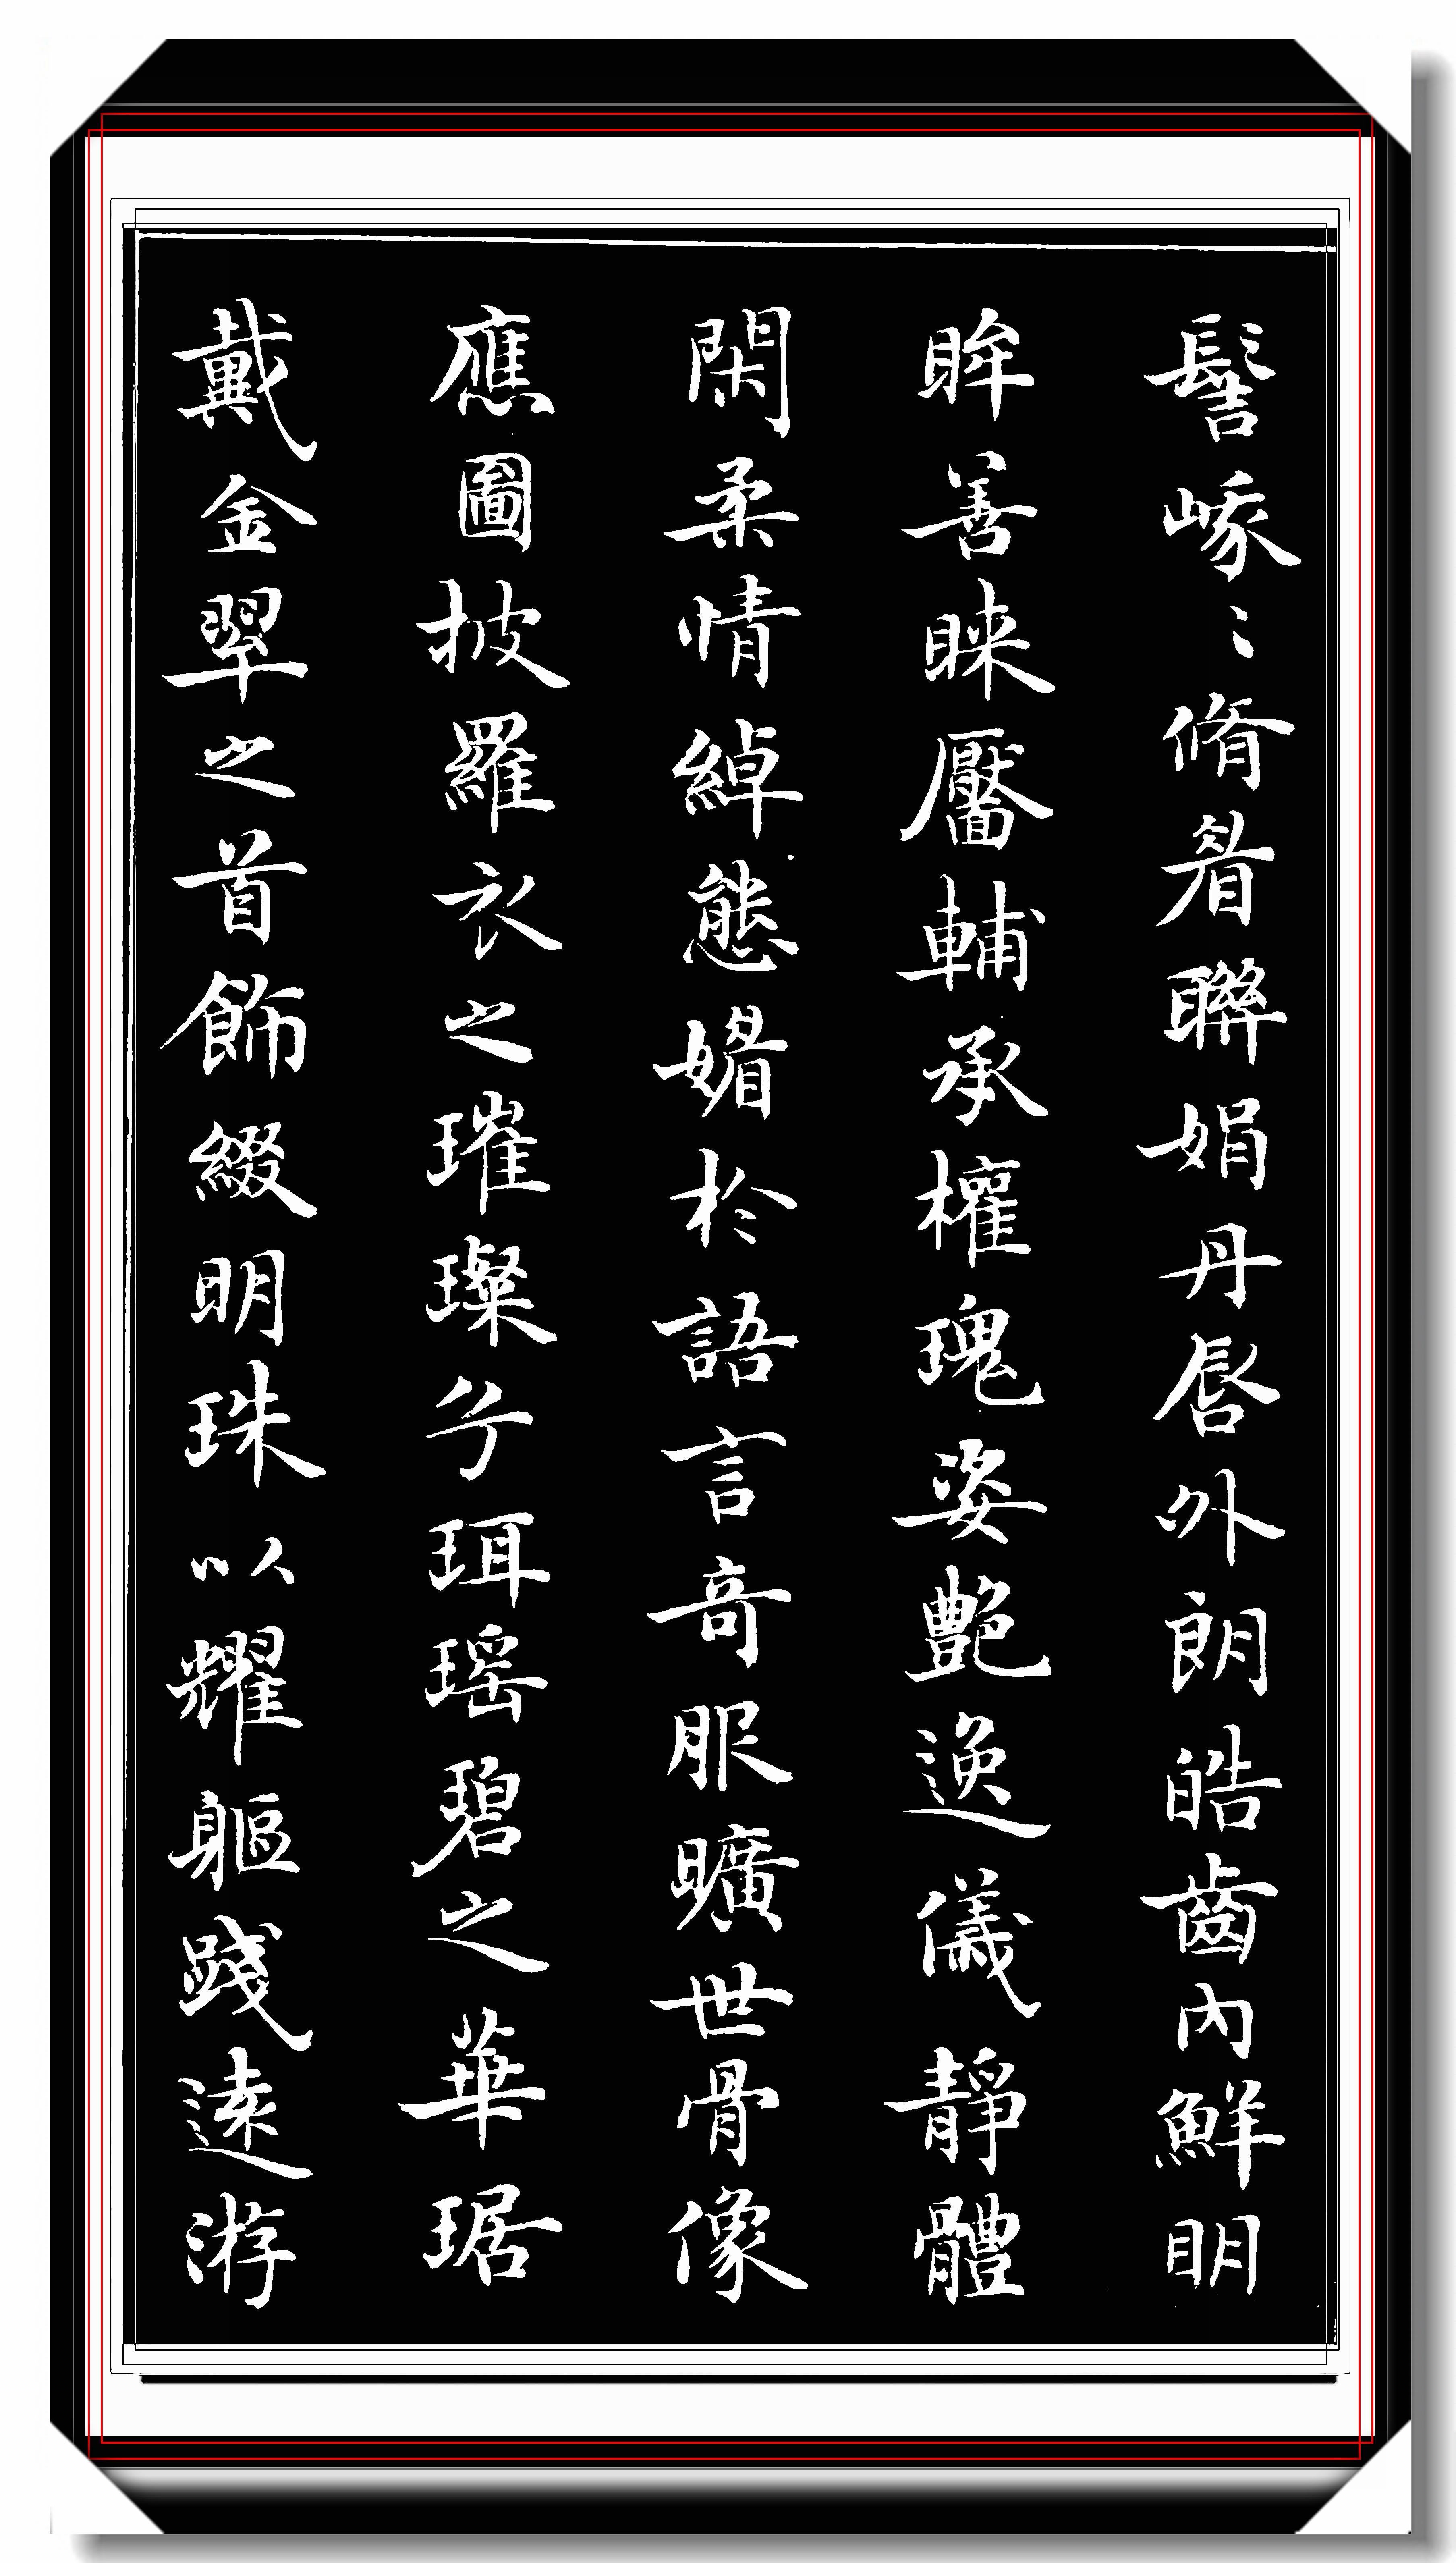 髻峨〻脩眉聯娟丹脣外朗皓齒內鮮明
眸善睞靨輔承權瑰姿艷逸儀靜體
閑柔情綽態媚於語言奇服曠世骨像
應圖披羅衣之璀璨兮珥瑤碧之華琚
戴金翠之首飾綴明珠以耀軀踐遠游